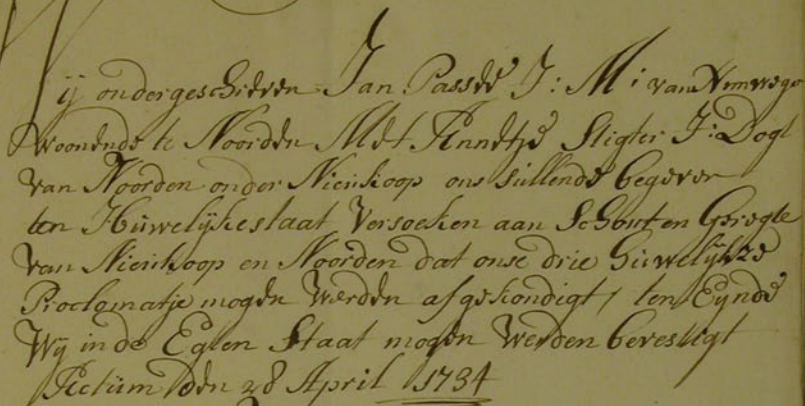 ij ondergeschreven Jan Passeé J: M: van Nimwege
woonende te Noorden Met Annetje Sligter J: Dogt
van Noorden onder Nieukoop ons sullende begeven
ten Huwelijkestaat Versoeken aan Schout en Geregte
van Nieukoop en Noorden dat onse drie Huwelijkze
Proclomatje mogen Werden afgekondigt, ten Eynde
Wij in de Egten Staat mogen Werden bevestigt
Actum den 28 April 1734